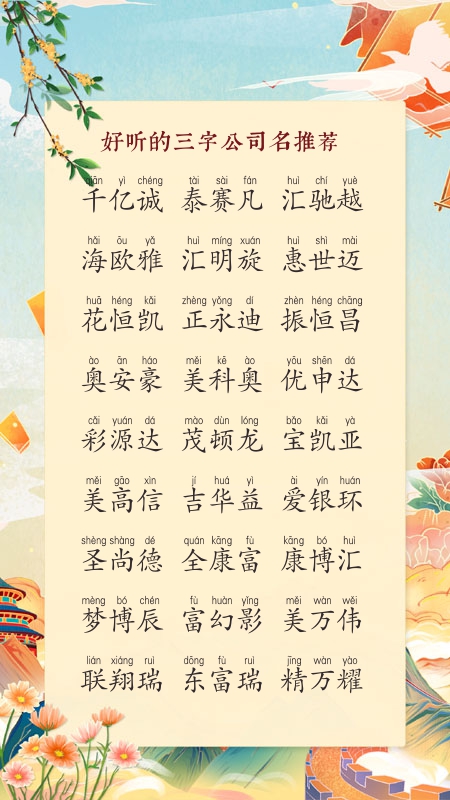 好听的三字公司名推荐
qiān yì chéng tài sài fán huì chí yuè
千亿诚 泰赛凡 汇驰越
hǎi ōu yǎ huì míng xuán huì shì mài
海欧雅 汇明旋 惠世迈
huā héng kǎi zhèng yǒng dí zhèn héng chāng
花恒凯 正永迪 振恒昌
ào ān háo měi kē ào yōu shēn dá
奥安豪 美科奥 优申达
cǎi yuán dá mào dùn lóng bǎo kǎi yà
彩源达 茂顿龙 宝凯亚
měi gāo xìn jí huá yì ài yín huán
美高信 吉华益 爱银环
shèng shàng dé quán kāng fù kāng bó huì
圣尚德 全康富 康博汇
mèng bó chén fù huàn yǐng měi wàn wěi
梦博辰 富幻影 美万伟
lián xiáng ruì dōng fù ruì jīng wàn yào
联翔瑞 东富瑞 精万耀